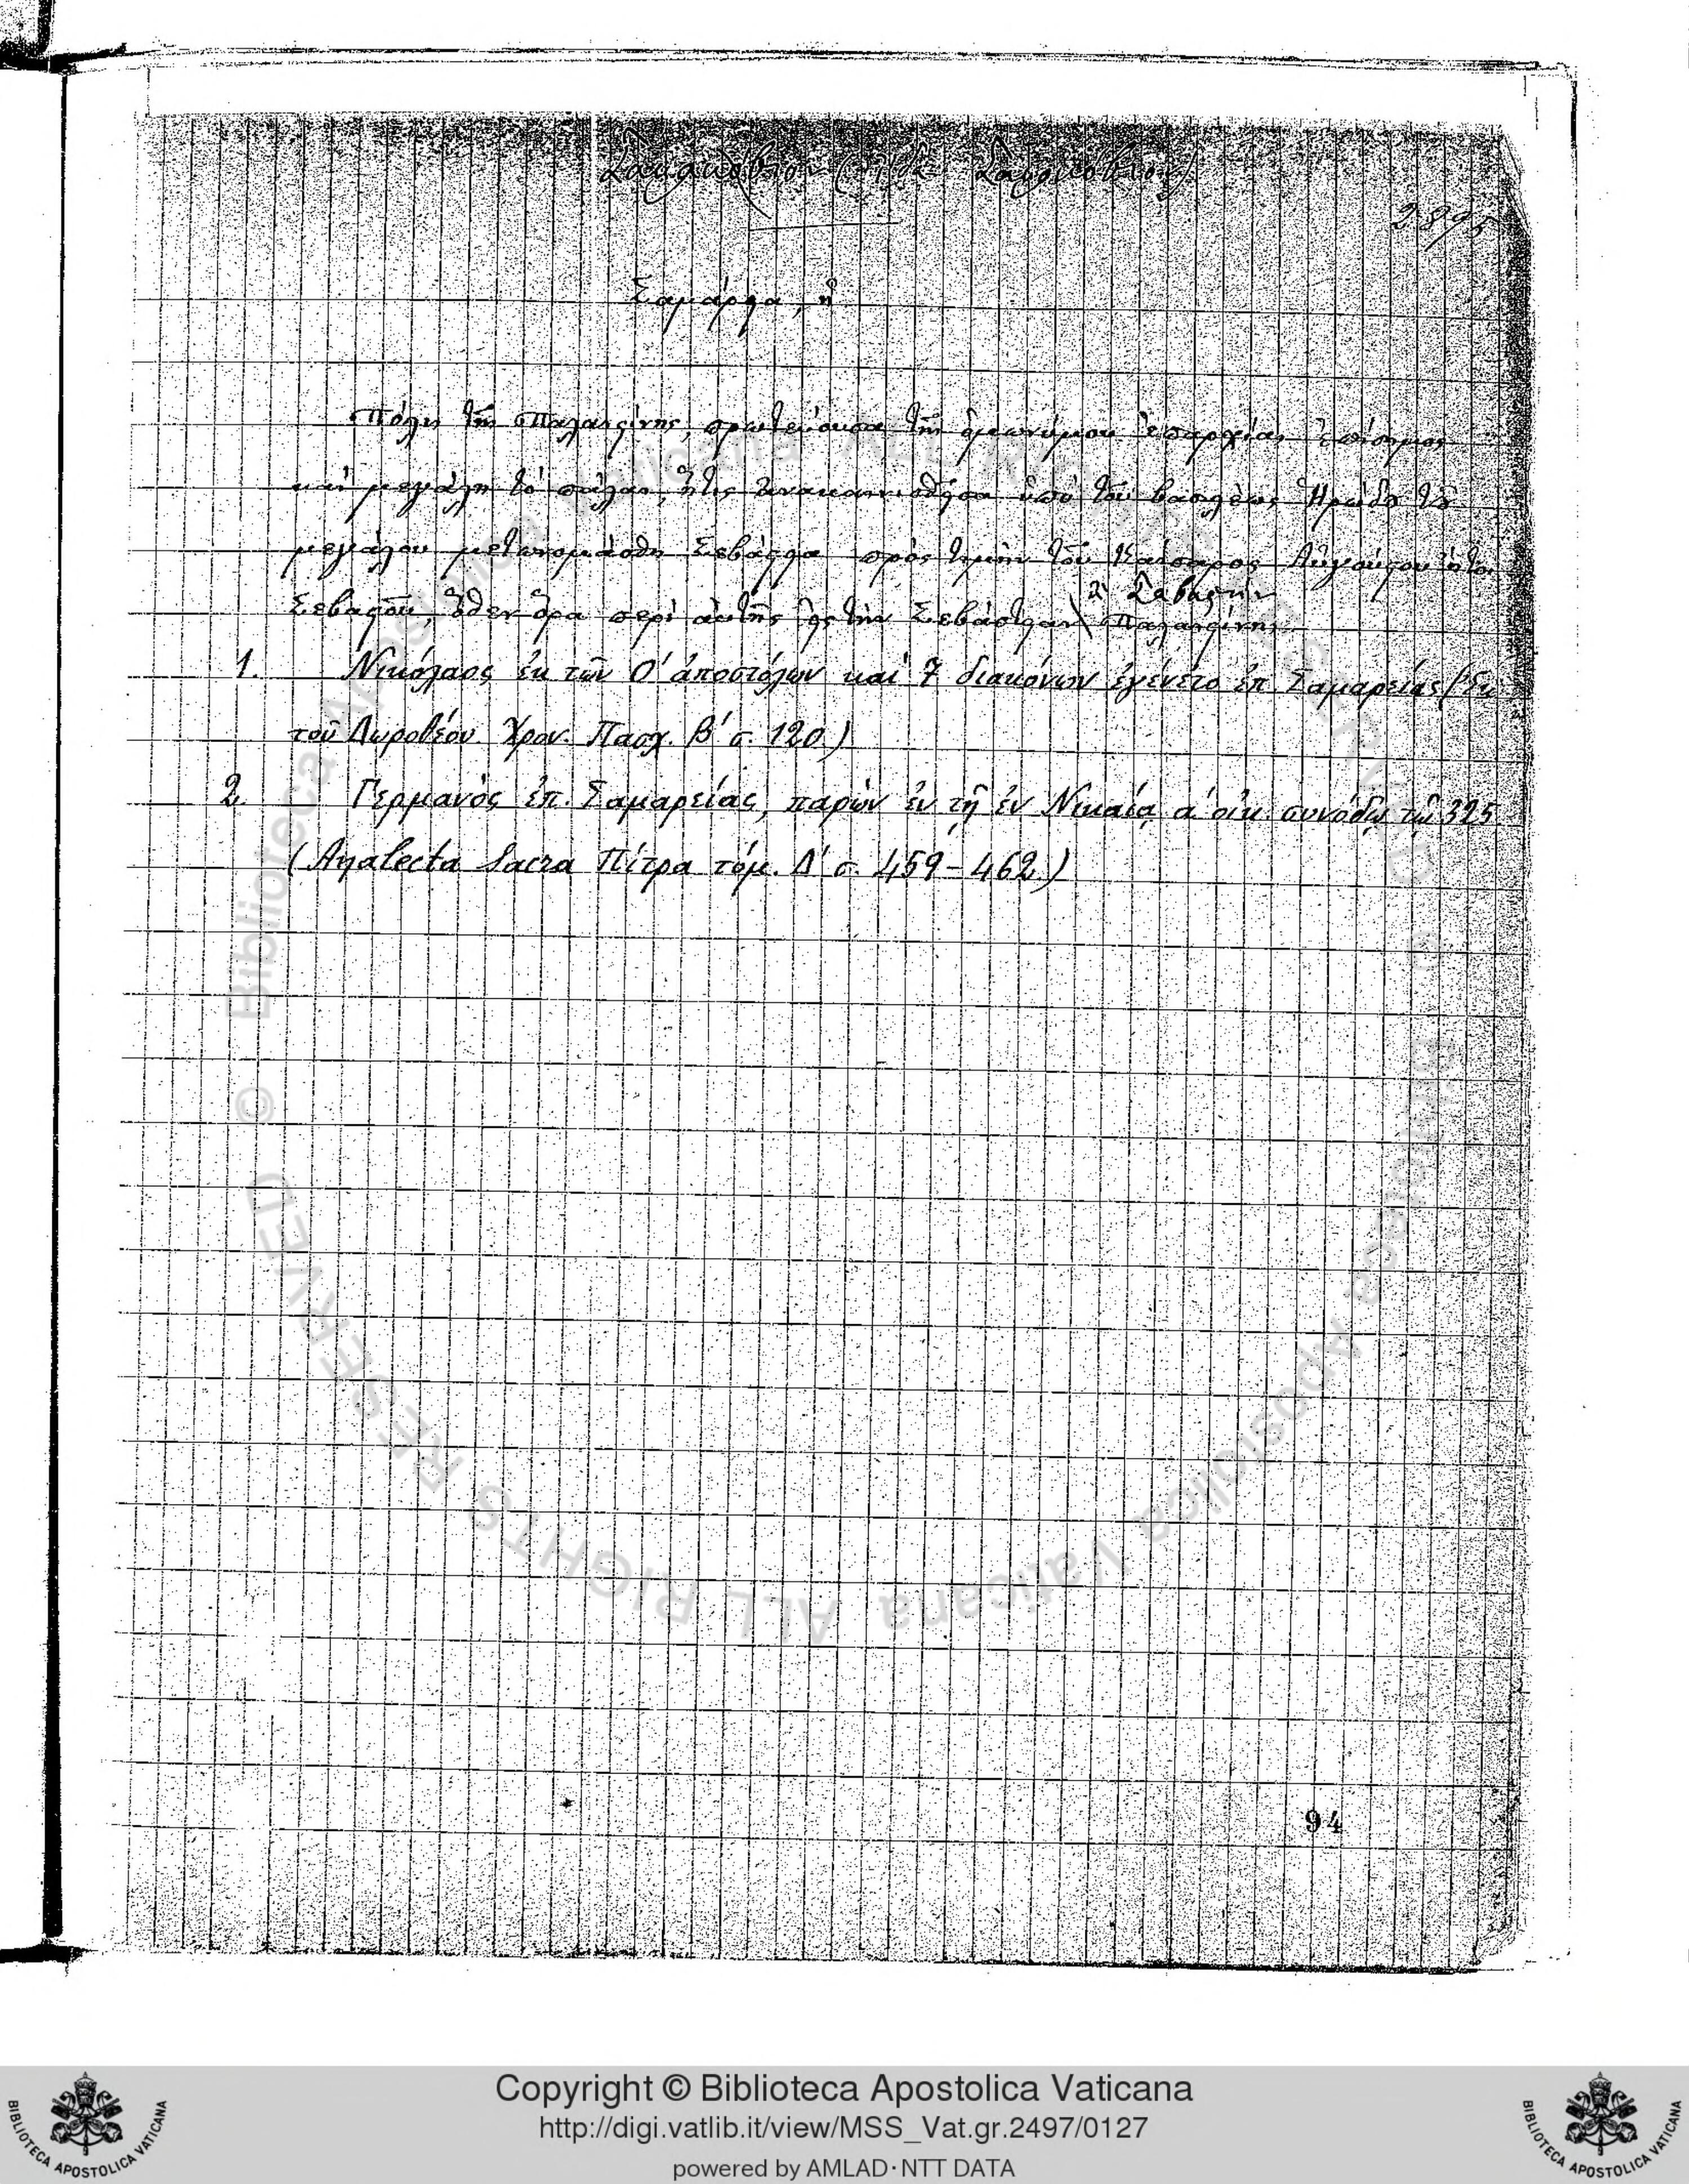 Σακακοβίον (ἴδε Σαυσκοβίον)
2895
Σαμάρεια, ἡ
Πόλις τῆς Παλαιστίνης, πρωτεύουσα τῆς ὁμωνύμου ἐπαρχίας ἐπίσημος
καὶ μεγάλη τὸ πάλαι, ἥτις ἀνακαινισθεῖσα ὑπὸ τοῦ βασιλέως Ἡρώδου τοῦ
μεγάλου μετωνομάσθη Σεβάστεια πρὸς τιμὴν τοῦ Καίσαρος Αὐγούστου ἤτοι
Σεβαστοῦ, ὅθεν ὅρα περὶ αὐτῆς εἰς τὴν Σεβάστειαν \ ἢ Σεβαστὴν Παλαιστίνης
1. Νικόλαος ἐκ τῶν Ο' ἀποστόλων καὶ 7 διακόνων ἐγένετο ἐπ. Σαμαρείας (Ἐκ
τοῦ Δωροθέου Χρον. Πασχ. Β' σ. 120.)
2. Γερμανὸς ἐπ. Σαμαρείας, παρὼν ἐν τῇ ἐν Νικαίᾳ α' οἰκ. συνόδῳ τῷ 325
(Analecta Sacra Πίτρα τόμ. Δ' σ. 459-462.)
94
Copyright © Biblioteca Apostolica Vaticana
http://digi.vatlib.it/view/MSS_Vat.gr.2497/0127
powered by AMLAD·NTT DATA
© Biblioteca Apostolica Vaticana ALL RIGHTS RESERVED
BIBLIOTECA APOSTOLICA VATICANA
BIBLIOTECA APOSTOLICA VATICANA